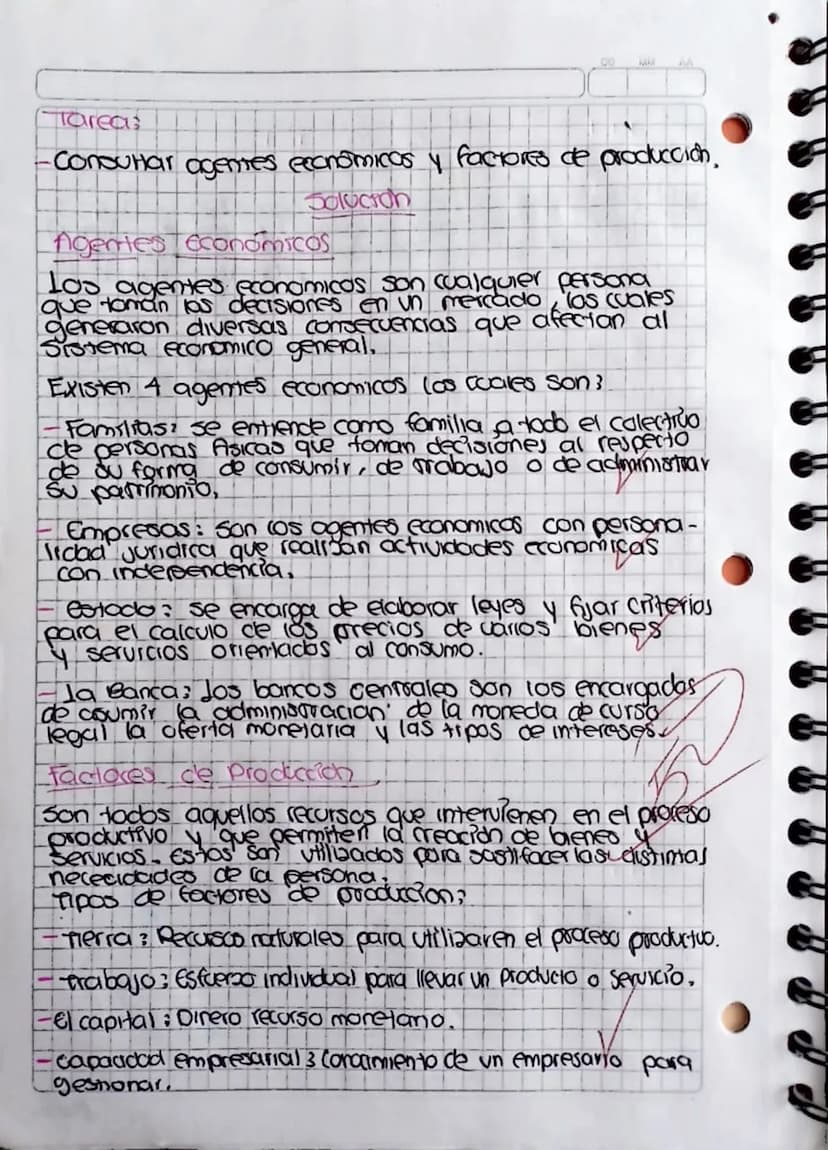 DD MM AA
Tarea:
- Consultar agentes económicos y factores de producción.
Solución
Agentes económicos
Los agentes economicos son cualquier persona
que toman las decisiones en un mercado, las cuales
generaron diversas consecuencias que afectan al
sistema economico general.
Existen 4 agentes economicos los cuales son:
- Familias: se entiende como familia a todo el colectivo
de personas fisicas que toman decisiones al respecto
de su forma de consumir, de trabajo o de administrar
su patrimonio.
- Empresas: son los agentes economicos con persona-
lidad juridica que realizan actividades economicas
con independencia.
- estado: se encarga de elaborar leyes y fijar criterios
para el calculo de los precios de varios bienes
y servicios orientados al consumo.
- la Banca: los bancos centrales son los encargados
de asumir la administracion de la moneda de curso
legal la oferta monetaria y las tipos de intereses.
Factores de Producción
son todos aquellos recursos que intervienen en el proceso
productivo y que permiten la creación de bienes y
servicios. Estos son utilizados para sastifacer las distintas
nececidades de la persona.
Tipos de factores de produccion:
- Tierra: Recursos naturales para utilizar en el proceso productivo.
- trabajo: Esfuerzo individual para llevar un producto o servicio.
- el capital: Dinero recurso monetario.
- capacidad empresarial: Conocimiento de un empresario para
gestionar.